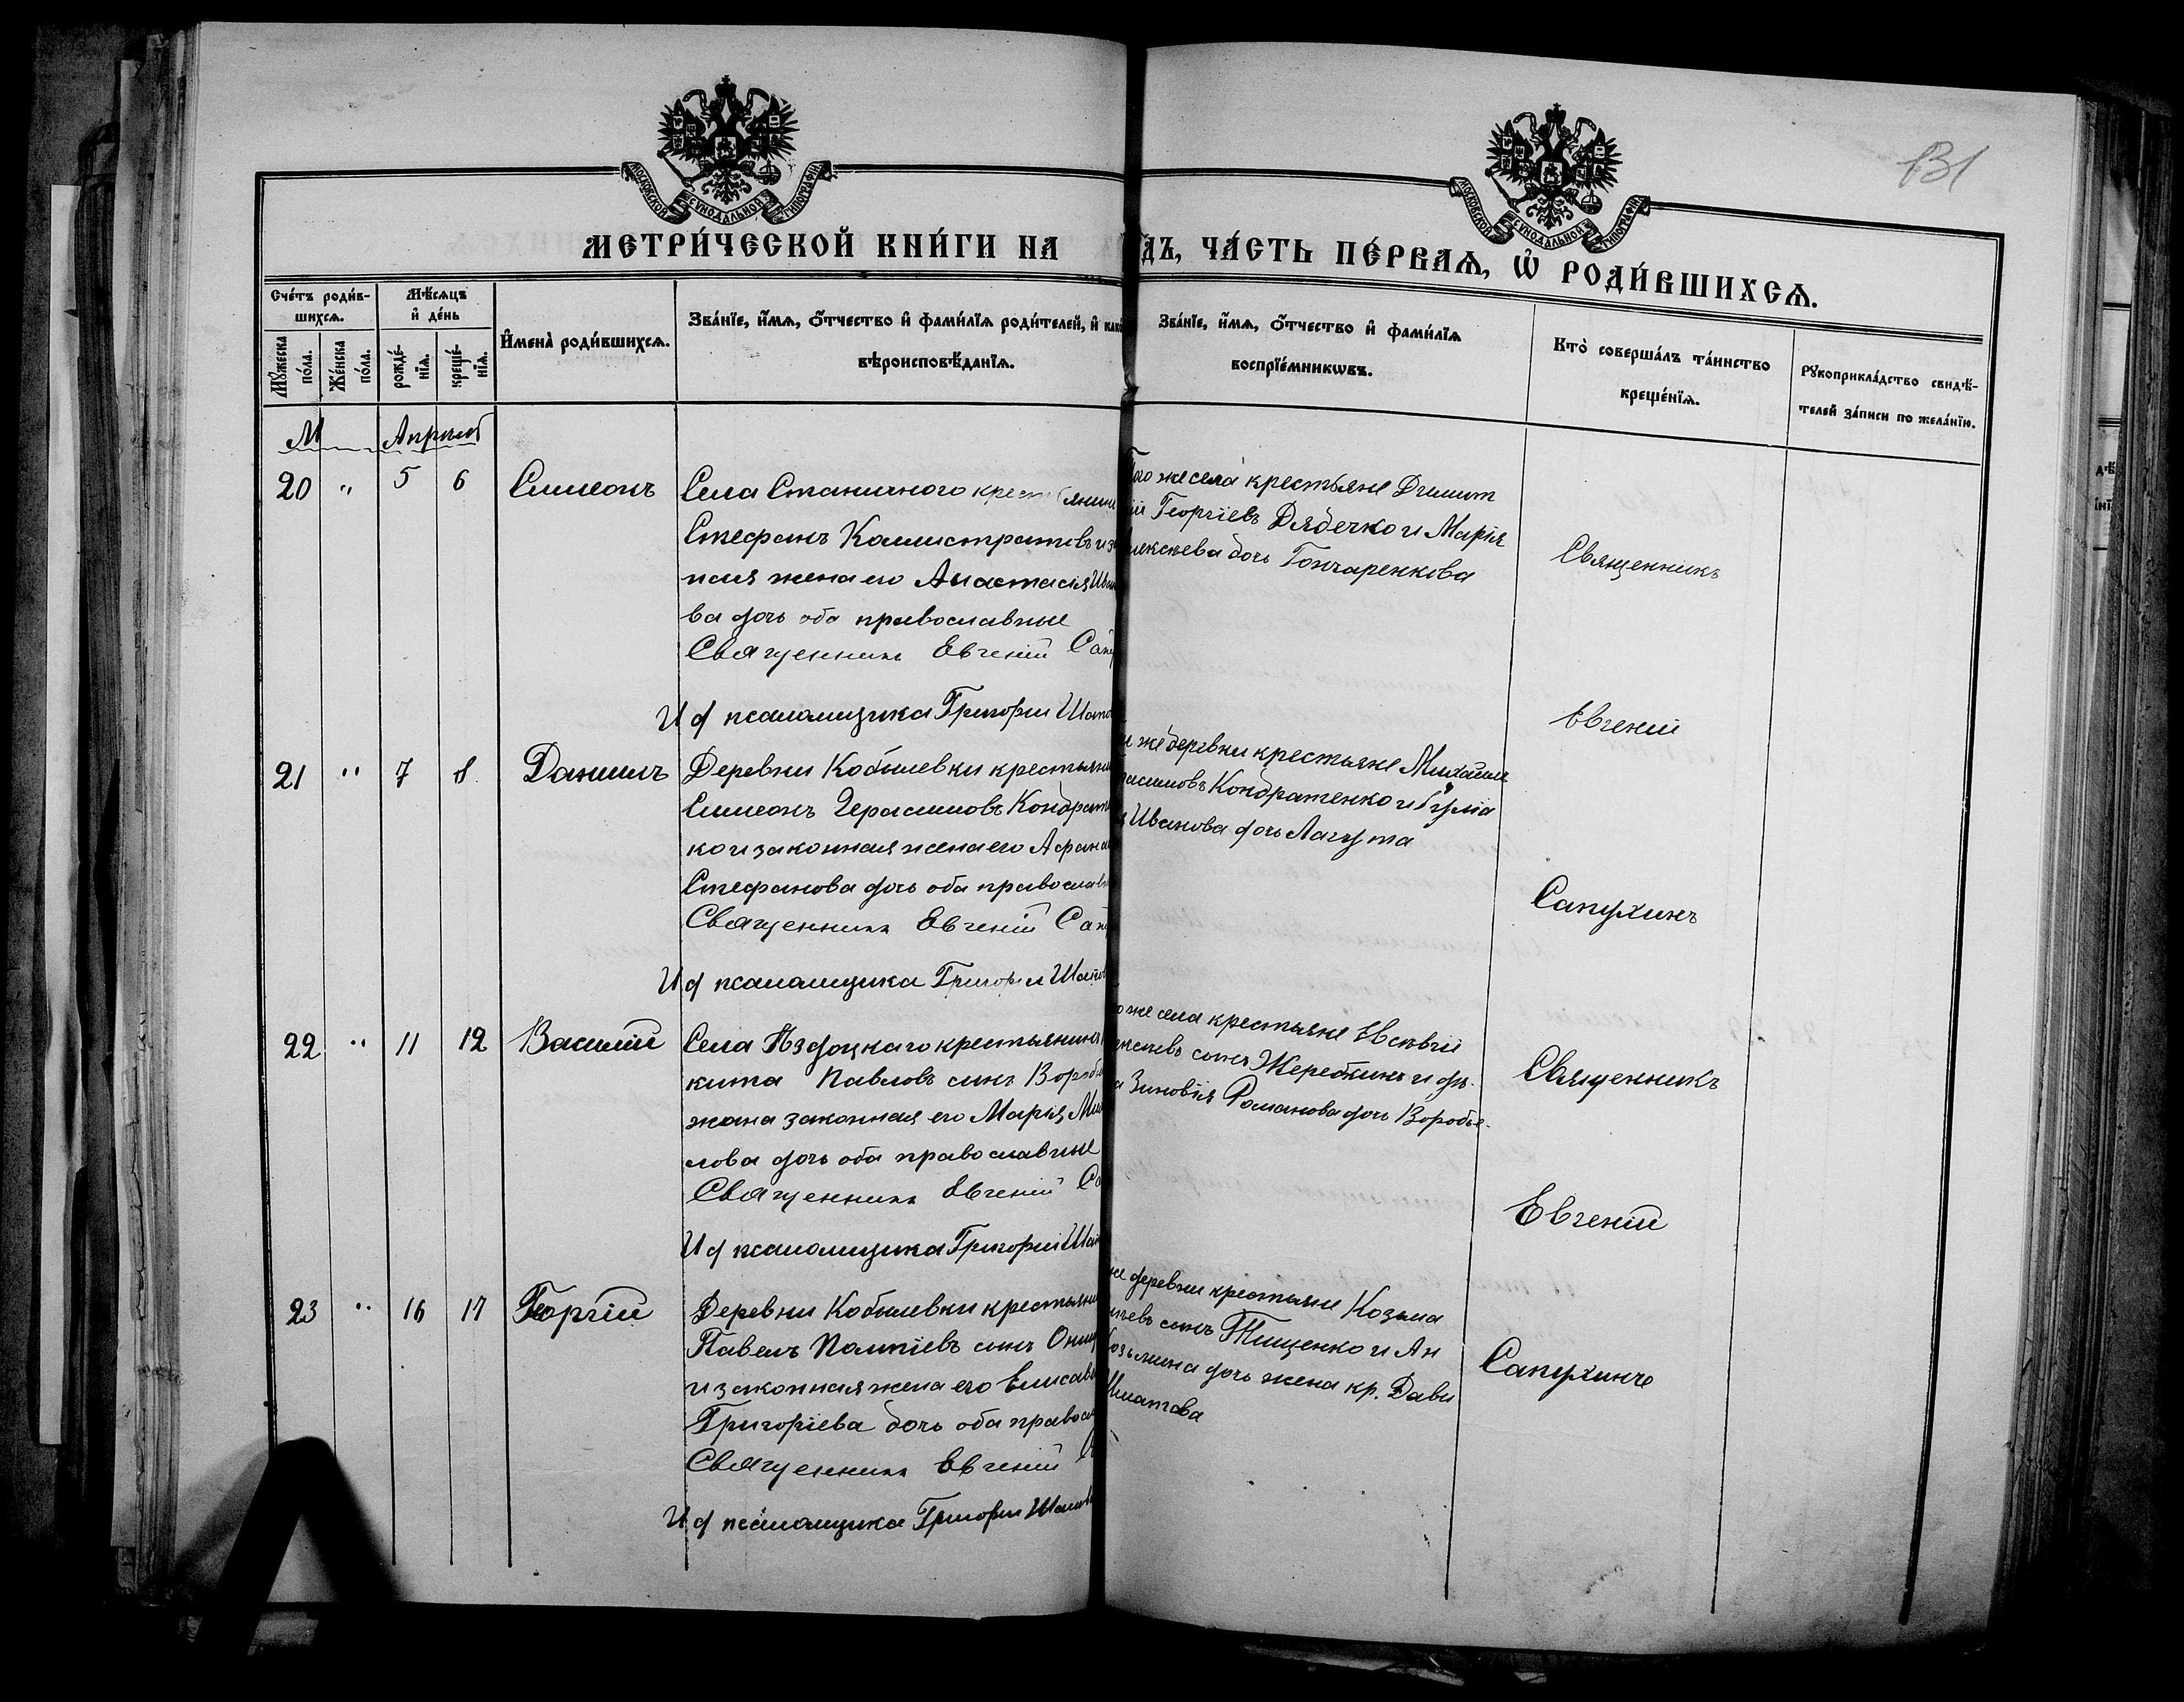 131
МОСКОВСКОЙ СУНОДАЛЬНОЙ ТИПОГРАФІИ
МОСКОВСКОЙ СУНОДАЛЬНОЙ ТИПОГРАФІИ
МЕТРИ́ЧЕСКОЙ КНИ́ГИ НА
ДЪ, ЧА́СТЬ ПЕ́РВАѦ, Ѡ҆ РОДИ́ВШИХСѦ.
Сче́тъ роди́в-
шихсѧ.
Мѣ́сѧцъ
и҆ де́нь
Мꙋ́жеска
по́ла.
Же́нска
по́ла.
рожде́-
нїѧ.
креще́-
нїѧ.
И҆мена̀ роди́вшихсѧ.
Зва́нїе, и҆́мѧ, ѻ҆́тчество и҆ фами́лїѧ роди́телей, и҆ како
вѣроисповѣ́данїѧ.
Зва́нїе, и҆́мѧ, ѻ҆́тчество и҆ фами́лїѧ
воспрїе́мникωвъ.
Кто̀ соверша́лъ та́инство
креще́нїѧ.
Рꙋкоприкла́дство свидѣ́-
телей за́писи по жела́нїю.
М Апрель
20 " 5 6 Симеонъ
Села Станичного крестьянин
Стефанъ Каллистратовъ и за
ная жена его Анастасія Ива
ва дочь оба православные
Священникъ Евгеній Сап
И д псаломщика Григорій Шапо
того же села крестьяне Димит
ій Георгіевъ Дядечко и Марія
лексѣева дочь Гончаренкова
Священникъ
Евгеній
21 " 7 8 Даніилъ
Деревни Кобылевки крестьяни
Симеонъ Герасимовъ Кондрат
ко и законная жена его Афана
Стефанова дочь оба православн
Священникъ Евгеній Сап
И д псаломщика Григорій Шапо
же деревни крестьяне Михаилъ
расимовъ Кондратенко и
Иванова дочь Лагута
Сапухинъ
22 " 11 12 Василій
Села крестьянинъ
кита Павловъ сынъ Вороб
жена законная его Марія Ми
лова дочь оба православные
Священникъ Евгеній Са
И д псаломщика Григорій Шап
о же села крестьяне Евсѣвій
ексѣевъ сынъ Жеребкинъ и дѣ-
а Зиновія Романова дочь Воробье-
Священникъ
Евгеній
23 " 16 17 Георгій
Деревни Кобылевки крестьяни
Павелъ сынъ Онищ
и законная жена его Елисаве
Григоріева дочь оба правосл
Священникъ Евгеній
И д псаломщика Григорій Шапов
же деревни крестьяне Козьма
сынъ Тищенко и Ан
Козьмина дочь жена кр. Дави
Сапухинъ